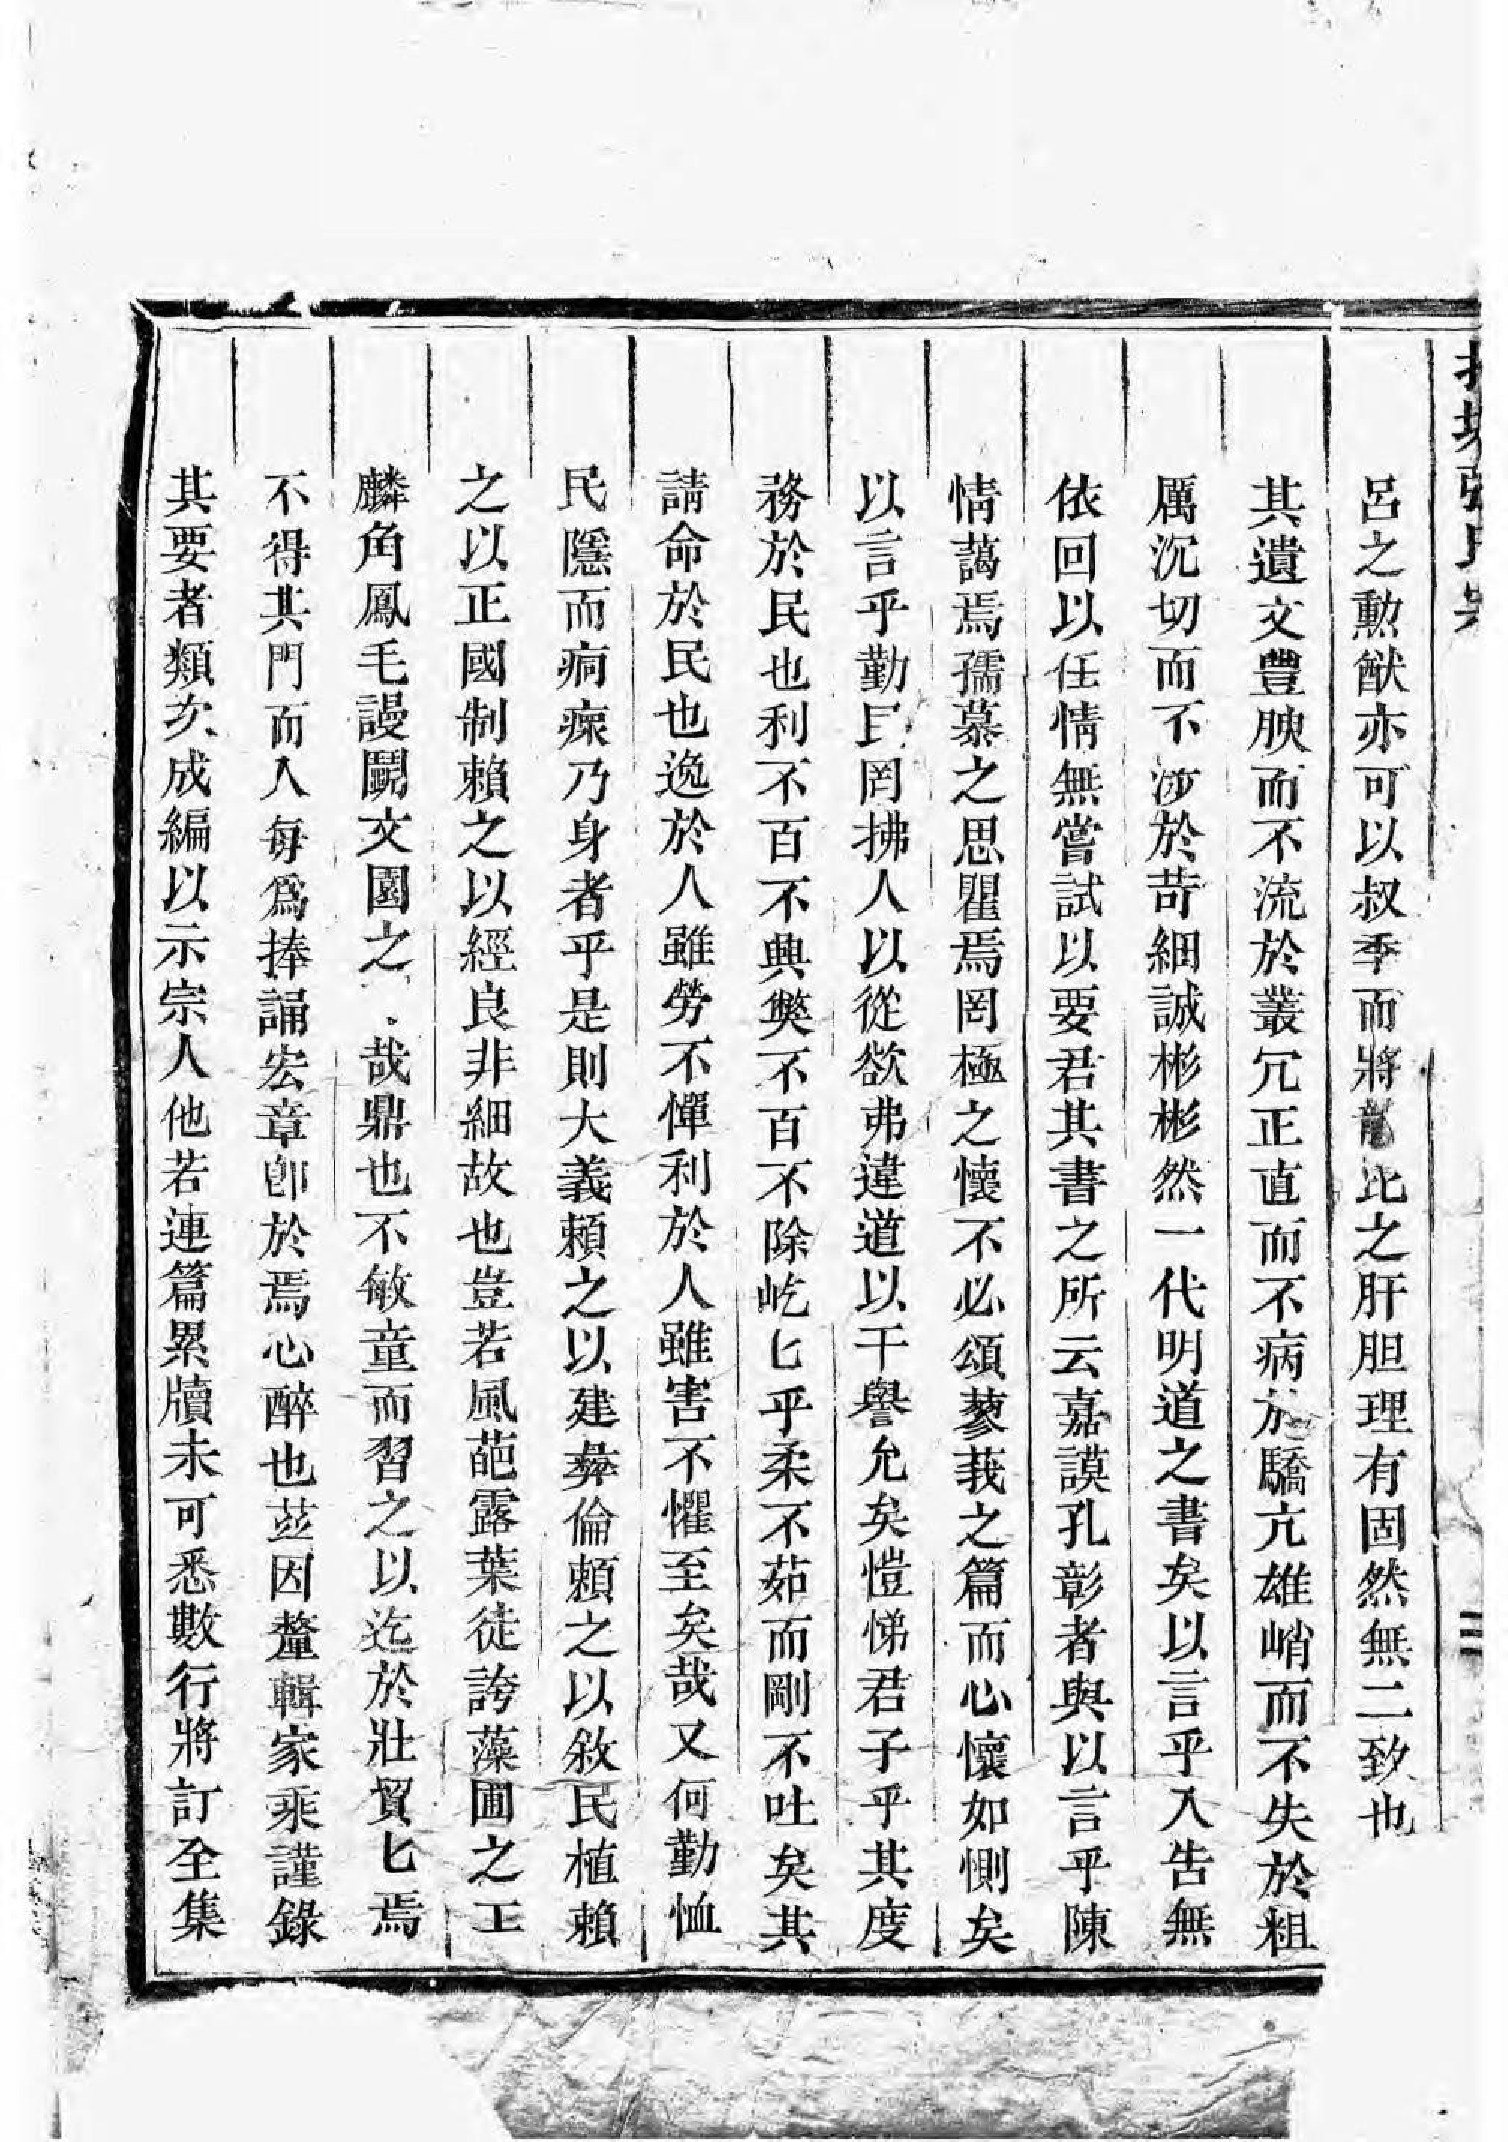 呂之勲猷亦可以叔季而將龍比之肝胆理有固然無二致也
其遺文豐腴而不流於叢冗正直而不病於驕亢雄峭而不失於粗
厲沉切而不涉於苛細誠彬彬然一代明道之書矣以言乎入告無
依回以任情無嘗試以要君其書之所云嘉謨孔彰者與以言乎陳
情藹焉孺慕之思瞿焉罔極之懐不必頌蓼莪之篇而心懷如惻矣
以言乎勤民罔拂人以從欲弗違道以干譽允矣愷悌君子乎其度
務於民也利不百不興獘不百不除屹匕乎柔不茹而剛不吐矣其
請命於民也逸於人雖勞不憚利於人雖害不懼至矣哉又何勤恤
民隱而痌瘝乃身者乎是則大義賴之以建彜倫賴之以敘民植賴
之以正國制賴之以經良非細故也豈若風葩露葉徒誇藻圃之工
麟角鳳毛謾鬪文園之 哉鼎也不敏童而習之以迄於壯貿匕焉
不得其門而入每爲捧誦宏章卽於焉心醉也茲因釐輯家乘謹錄
其要者類次成編以示宗人他若連篇累牘未可悉數行將訂全集
張氏
三